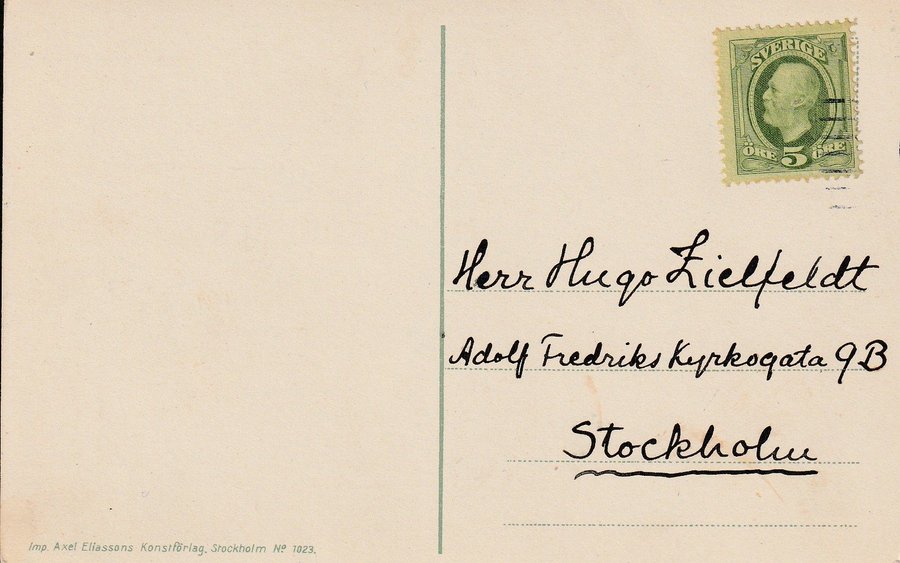 SVERIGE
ÖRE 5 ÖRE
Herr Hugo Zielfeldt
Adolf Fredriks Kyrkogata 9B
Stockholm
Imp. Axel Eliassons Konstförlag, Stockholm Nº 1023.